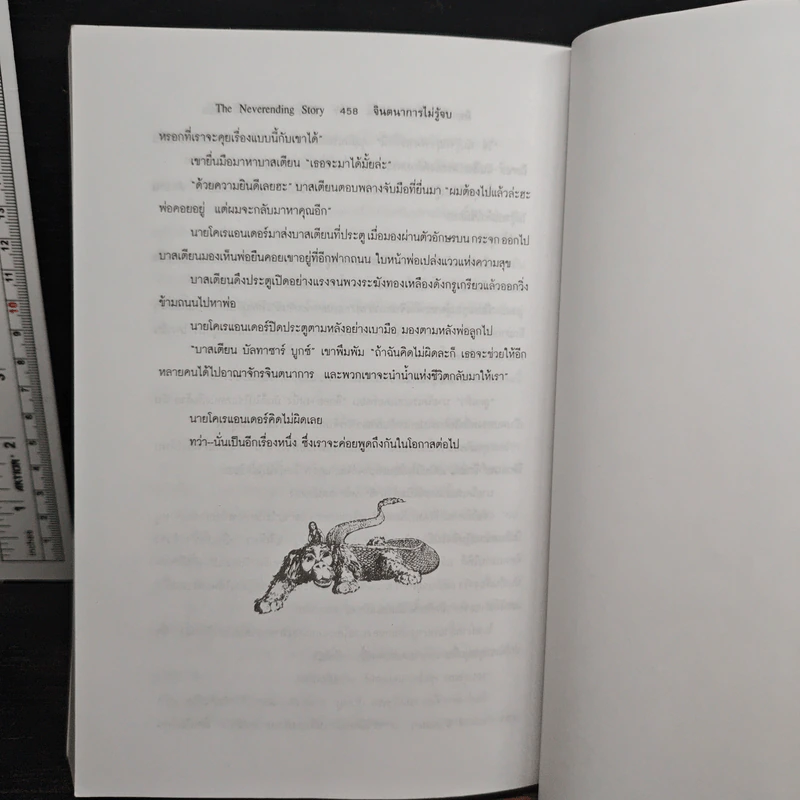 The Neverending Story 458 จินตนาการไม่รู้จบ
หรอกที่เราจะคุยเรื่องแบบนี้กับเขาได้"
เขายื่นมือมาหาบาสเตียน "เธอจะมาได้มั้ยล่ะ"
"ด้วยความยินดีเลยฮะ" บาสเตียนตอบพลางจับมือที่ยื่นมา "ผมต้องไปแล้วล่ะฮะ
พ่อคอยอยู่ แต่ผมจะกลับมาหาคุณอีก"
นายโคเรแอนเดอร์มาส่งบาสเตียนที่ประตู เมื่อมองผ่านตัวอักษรบน กระจก ออกไป
บาสเตียนมองเห็นพ่อยืนคอยเขาอยู่ที่อีกฟากถนน ใบหน้าพ่อเปล่งแววแห่งความสุข
บาสเตียนดึงประตูเปิดอย่างแรงจนพวงระฆังทองเหลืองดังกรูเกรียวแล้วออกวิ่ง
ข้ามถนนไปหาพ่อ
นายโคเรแอนเดอร์ปิดประตูตามหลังอย่างเบามือ มองตามหลังพ่อลูกไป
"บาสเตียน บัลทาซาร์ บูกซ์" เขาพึมพัม "ถ้าฉันคิดไม่ผิดละก็ เธอจะช่วยให้อีก
หลายคนได้ไปอาณาจักรจินตนาการ และพวกเขาจะนำน้ำแห่งชีวิตกลับมาให้เรา"
นายโคเรแอนเดอร์คิดไม่ผิดเลย
ทว่า–นั่นเป็นอีกเรื่องหนึ่ง ซึ่งเราจะค่อยพูดถึงกันในโอกาสต่อไป